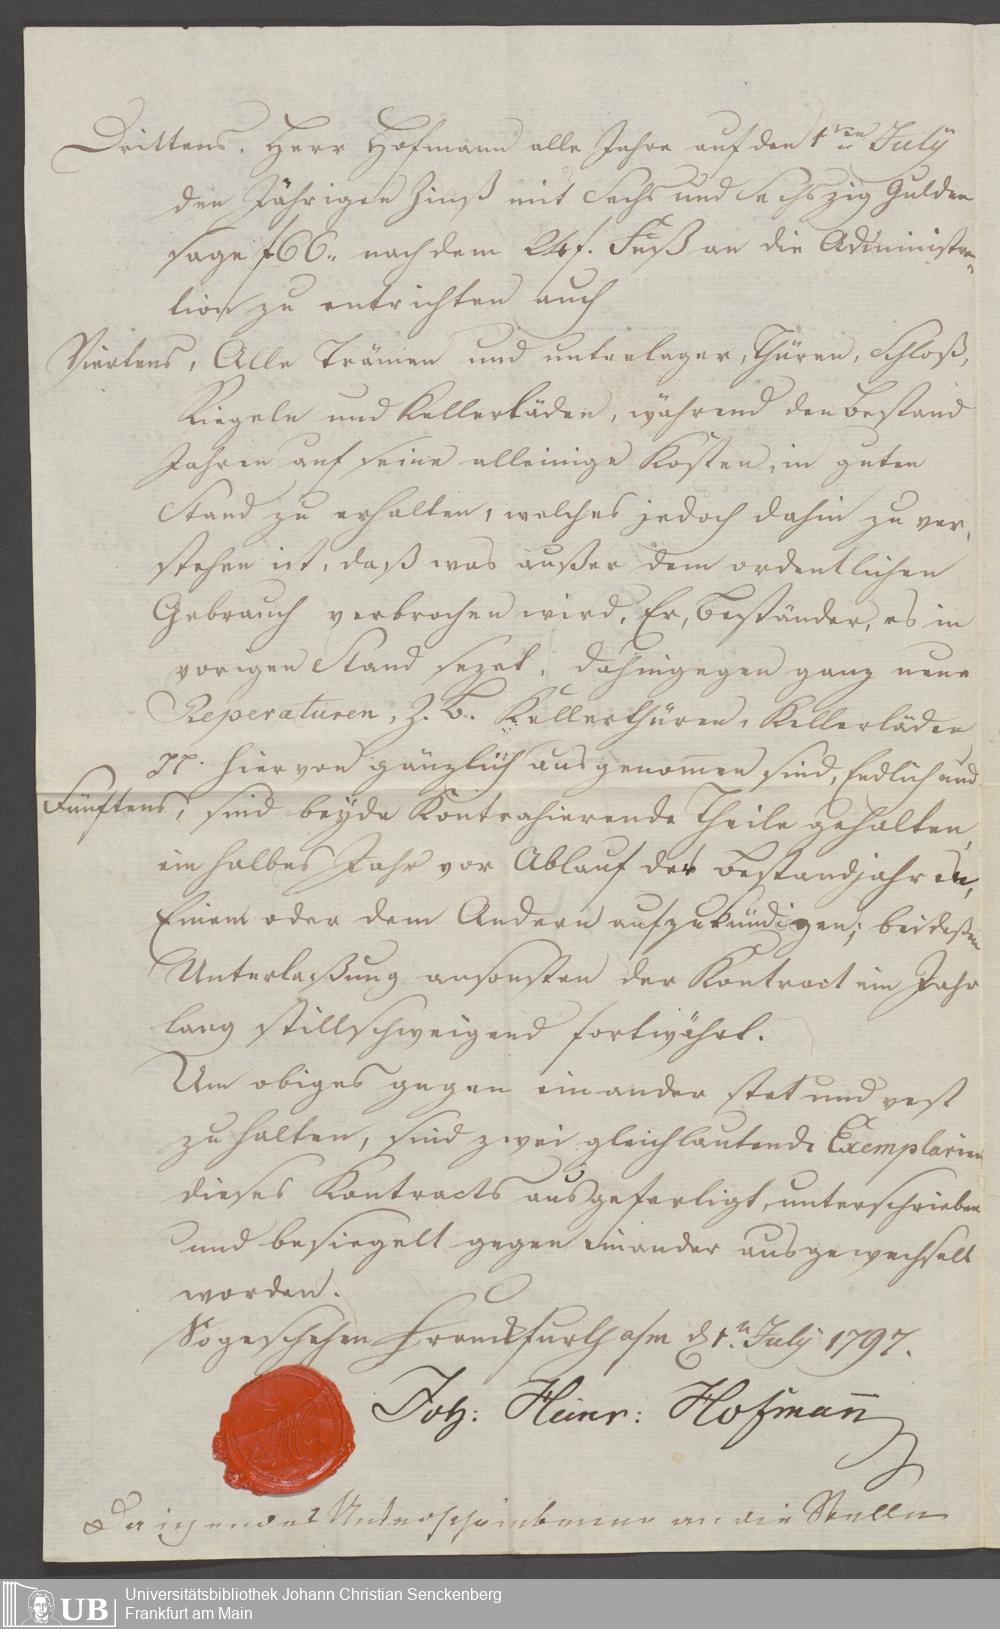 Drittens. Herr Hofmann alle Jahre auf den 1ten July
den Jährigen Zinß mit Sechs und Sechszig Gulden
sage f66„ nach dem 24f. Fuß an die Administra„
tion zu entrichten auch
Viertens, Alle Trämen und unterlager, Thüren, Schloß,
Riegeln und Kellerläden, während den Bestand
Jahren auf seine alleinige Kosten, in guten
Stand zu erhalten, welches jedoch dahin zu ver,
stehen ist, daß was außer dem ordentlichen
Gebrauch verbrochen wird, Er, Beständer, es in
vorigen Stand sezet, dahingegen ganz neue
Reperaturen, z. B. Kellerthüren, Kellerläden
pp. hiervon gänzlich ausgenommen sind, Endlich und
Fünftens, sind beyde Kontrahierende Theile gehalten,
ein halbes Jahr vor Ablauf der Bestandjahren,
Einem oder dem Andern aufzukündigen; bei deßen
Unterlaßung ansonsten der Kontract ein Jahr
lang stillschweigend fortwährt.
Um obiges gegen einander stet und vest
zu halten, sind zwei gleichlautende Exemplarien
dieses Kontracts ausgefertigt, unterschrieben
und besiegelt gegen einander ausgewechselt
worden.
So geschehen Franckfurth a/m d 1n July 1797.
Joh: Heinr: Hofmann
an die Stelle
Universitätsbibliothek Johann Christian Senckenberg
Frankfurt am Main
UB